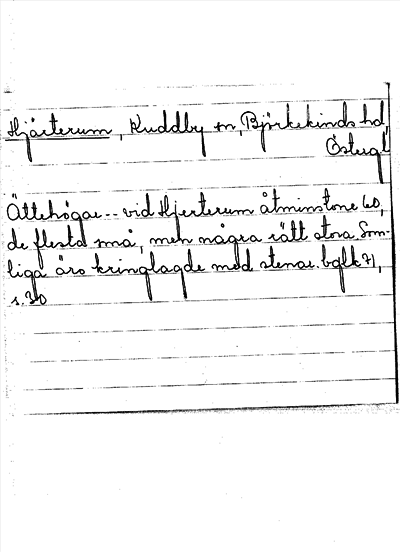 Hjärterum, Kuddby sn, Björkekinds hd,
Östergl
Ättehögar -- vid Hjerterum åtminstone 60,
de flesta små, men några rätt stora. Som-
liga äro kringlagde med stenar. bglk 71,
s. 30